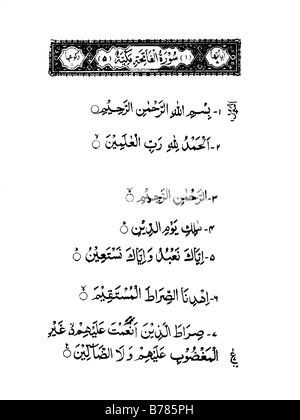 سُوْرَةُ الْفَاتِحَةِ مَكِّيَّةٌ (۵) (۱)
۱- بِسْمِ اللهِ الرَّحْمٰنِ الرَّحِيْمِ
۲- اَلْحَمْدُ لِلهِ رَبِّ الْعٰلَمِيْنَ
۳- الرَّحْمٰنِ الرَّحِيْمِ
۴- مٰلِكِ يَوْمِ الدِّيْنِ
۵- اِيَّاكَ نَعْبُدُ وَ اِيَّاكَ نَسْتَعِيْنُ
۶- اِهْدِنَا الصِّرَاطَ الْمُسْتَقِيْمَ
۷- صِرَاطَ الَّذِيْنَ اَنْعَمْتَ عَلَيْهِمْ غَيْرِ
الْمَغْضُوْبِ عَلَيْهِمْ وَلَا الضَّآلِّيْنَ
alamy
B785PH